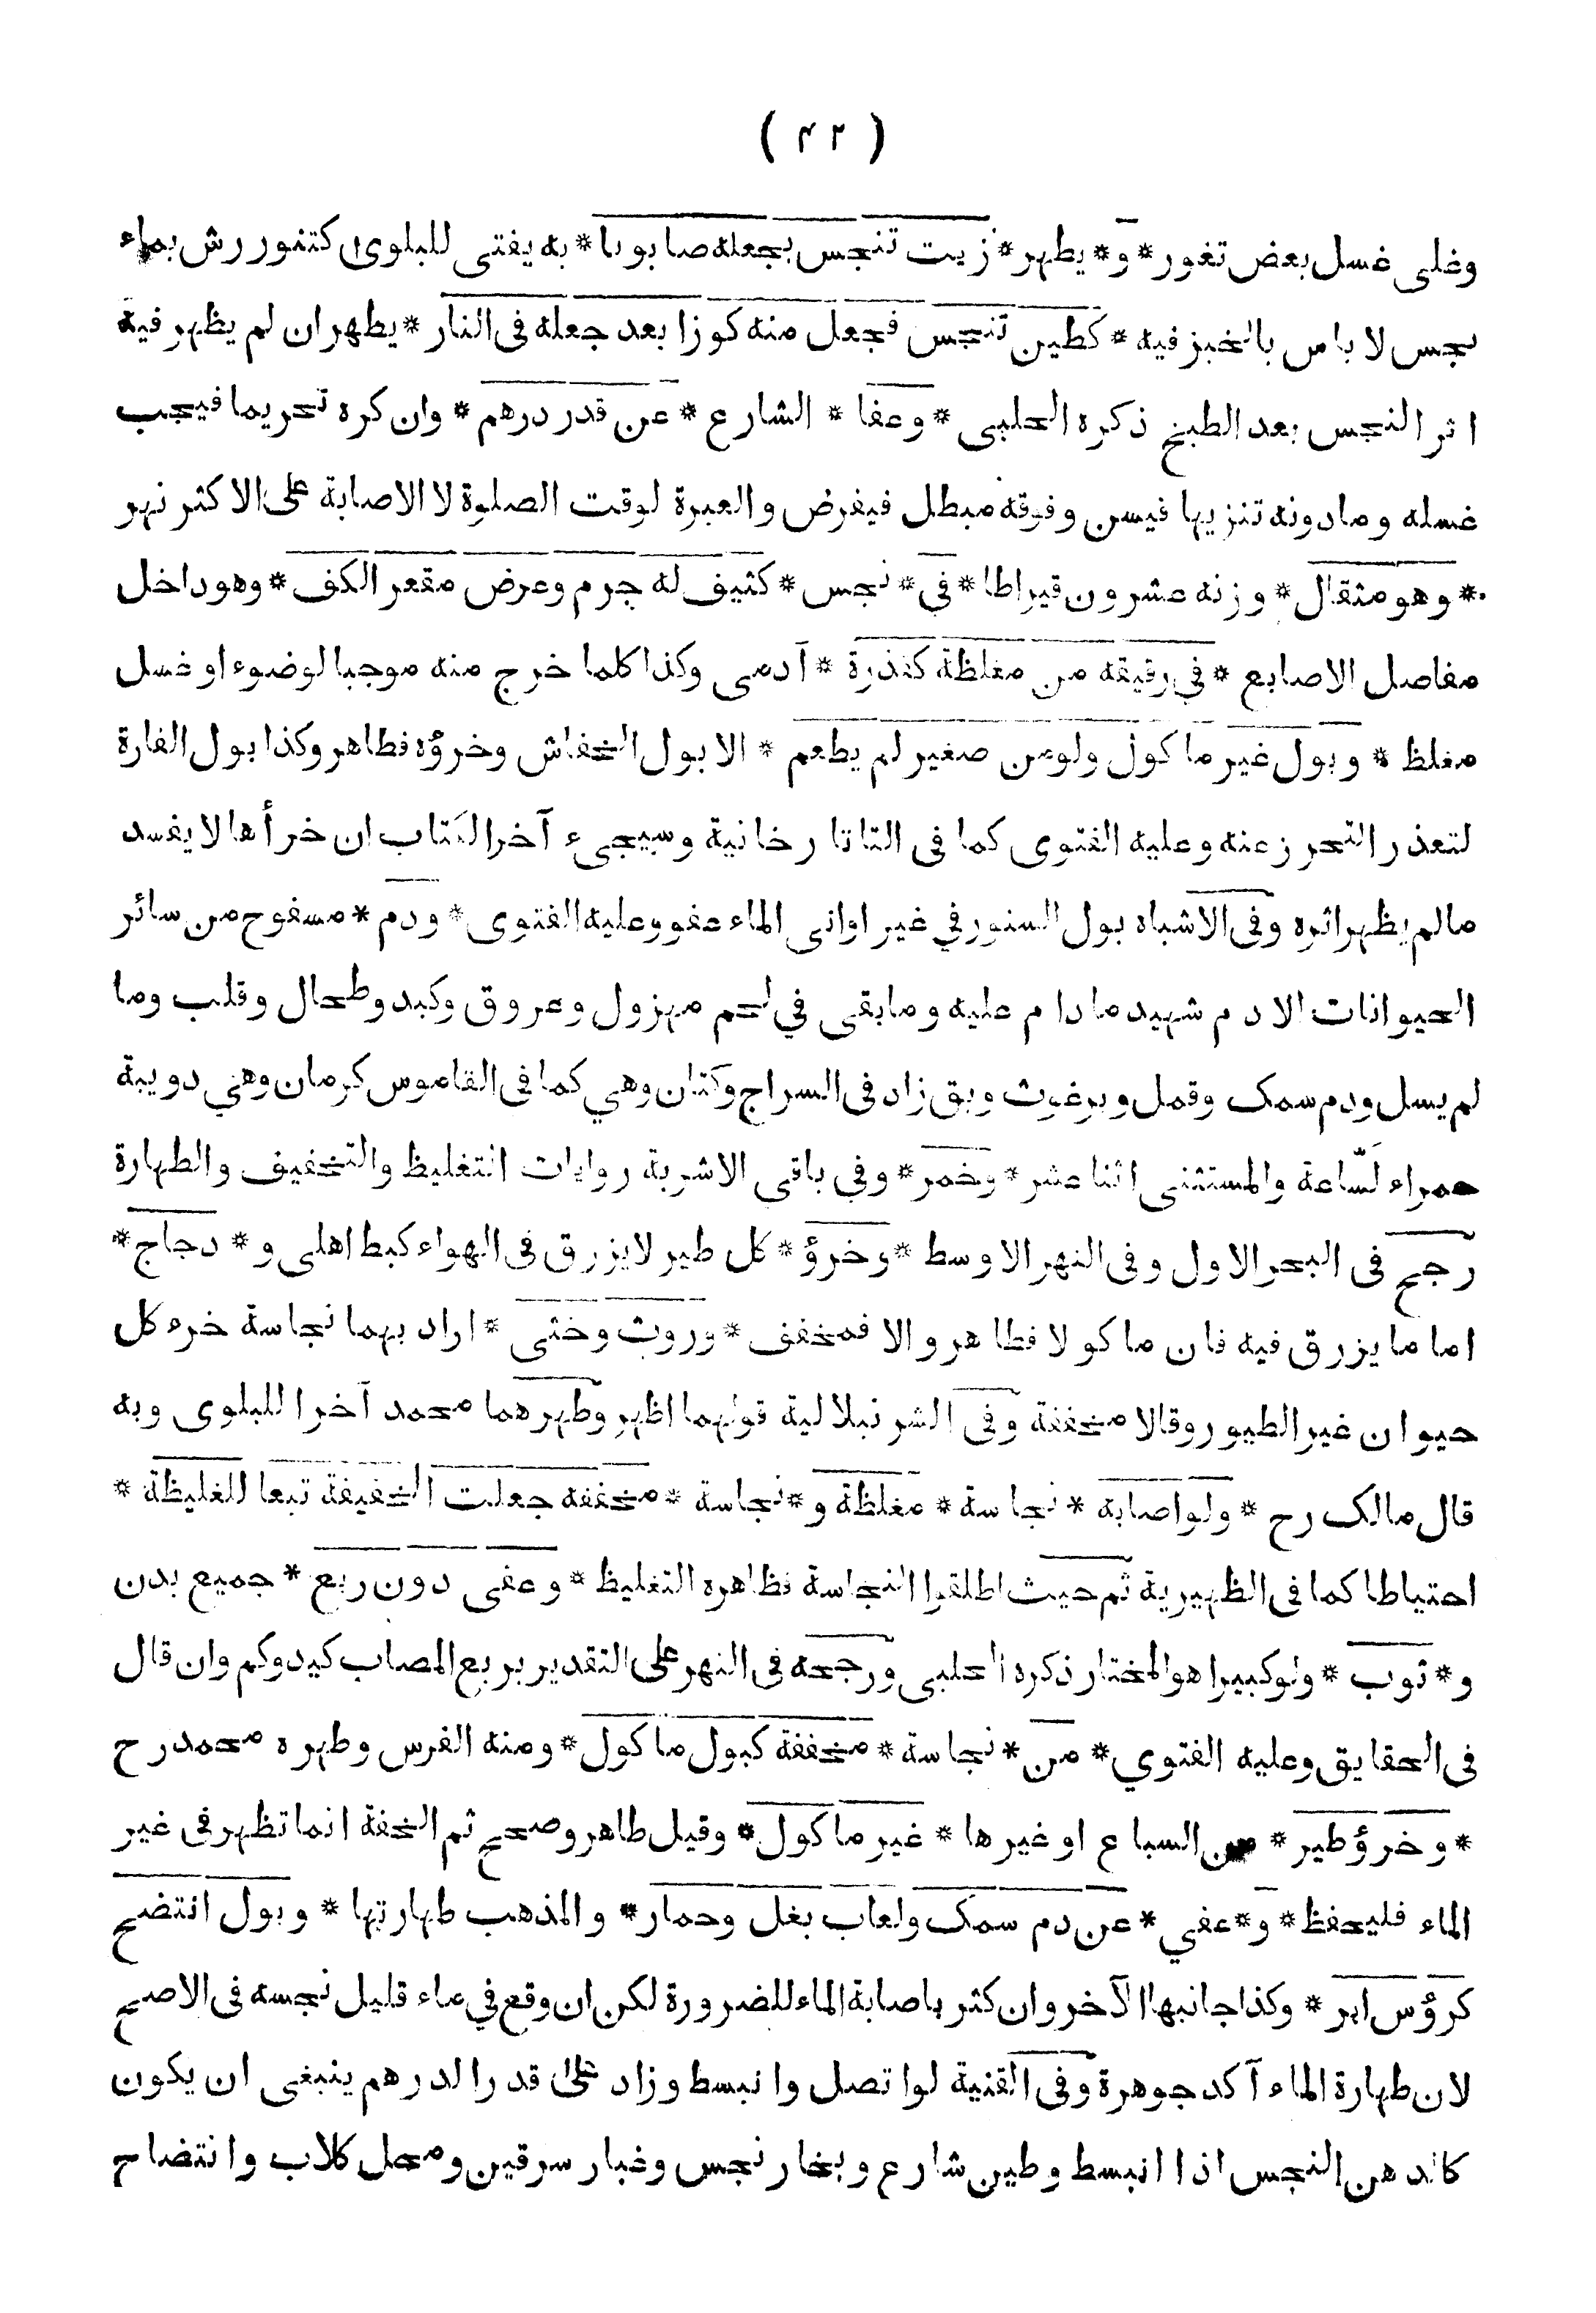 ( ٤٢ )
وغلى غسل بعض تغور * و * يطهر * زيت تنجس بجعله صابونا * به يفتى للبلوى كتنور رش بماء
نجس لا باس بالخبز فيه * كطين تنجس فجعل منه كوزا بعد جعله فى النار * يطهر ان لم يظهر فيه
اثر النجس بعد الطبخ ذكره الحلبى * وعفا * الشارع * عن قدر درهم * وان كره تحريما فيجب
غسله ومادونه تنزيها فيسن وفوقه مبطل فيفرض والعبرة لوقت الصلوة لا الاصابة على الاكثر نهر
* وهو مثقال * وزنه عشرون قيراطا * في * نجس * كثيف له جرم وعرض مقعر الكف * وهو داخل
مفاصل الاصابع * في رقيقه من مغلظة كعذرة * آدمى وكذا كلما خرج منه موجبا لوضوء او غسل
مغلظ * وبول غير ماكول ولو من صغير لم يطعم * الا بول الخفاش وخرؤه فطاهر وكذا بول الفارة
لتعذر التحرز عنه وعليه الفتوى كما فى التاتارخانية وسيجىء آخر الكتاب ان خرأها لا يفسد
مالم يظهر اثره وفى الاشباه بول السنور في غير اوانى الماء عفو وعليه الفتوى * ودم * مسفوح من سائر
الحيوانات الا دم شهيد مادام عليه ومابقى في لحم مهزول وعروق وكبد وطحال وقلب وما
لم يسل ودم سمك وقمل وبرغوث وبق زاد فى السراج وكتان وهي كما فى القاموس كرمان وهي دويبة
حمراء لسّاعة والمستثنى اثنا عشر * وخمر * وفي باقى الاشربة روايات التغليظ والتخفيف والطهارة
رجح فى البحر الاول وفى النهر الاوسط * وخرؤ * كل طير لا يزرق فى الهواء كبط اهلى و * دجاج *
اما ما يزرق فيه فان ماكولا فطاهر والا فمخفف * وروث وخثى * اراد بهما نجاسة خرء كل
حيوان غير الطيور وقالا مخففة وفى الشرنبلالية قولهما اظهر وطهرهما محمد آخرا للبلوى وبه
قال مالك رح * ولو اصابه * نجاسة * مغلظة و * نجاسة * مخففه جعلت الخفيفة تبعا للغليظة *
احتياطا كما فى الظهيرية ثم حيث اطلقوا النجاسة فظاهره التغليظ * وعفى دون ربع * جميع بدن
و * ثوب * ولو كبيرا هو المختار ذكره الحلبى ورجحه فى النهر على التقدير بربع المصاب كيد وكم وان قال
فى الحقايق وعليه الفتوي * من * نجاسة * مخففة كبول ماكول * ومنه الفرس وطهره محمد رح
* وخرؤ طير * من السباع او غيرها * غير ماكول * وقيل طاهر وصحح ثم الخفة انما تظهر فى غير
الماء فليحفظ * و * عفي * عن دم سمك ولعاب بغل وحمار * والمذهب طهارتها * وبول انتضح
كرؤس ابر * وكذا جانبها الآخر وان كثر باصابة الماء للضرورة لكن ان وقع في ماء قليل نجسه فى الاصح
لان طهارة الماء آكد جوهرة وفى القنية لو اتصل وانبسط وزاد على قدر الدرهم ينبغى ان يكون
كالدهن النجس اذا انبسط وطين شارع وبخار نجس وغبار سرقين ومحل كلاب وانتضاح